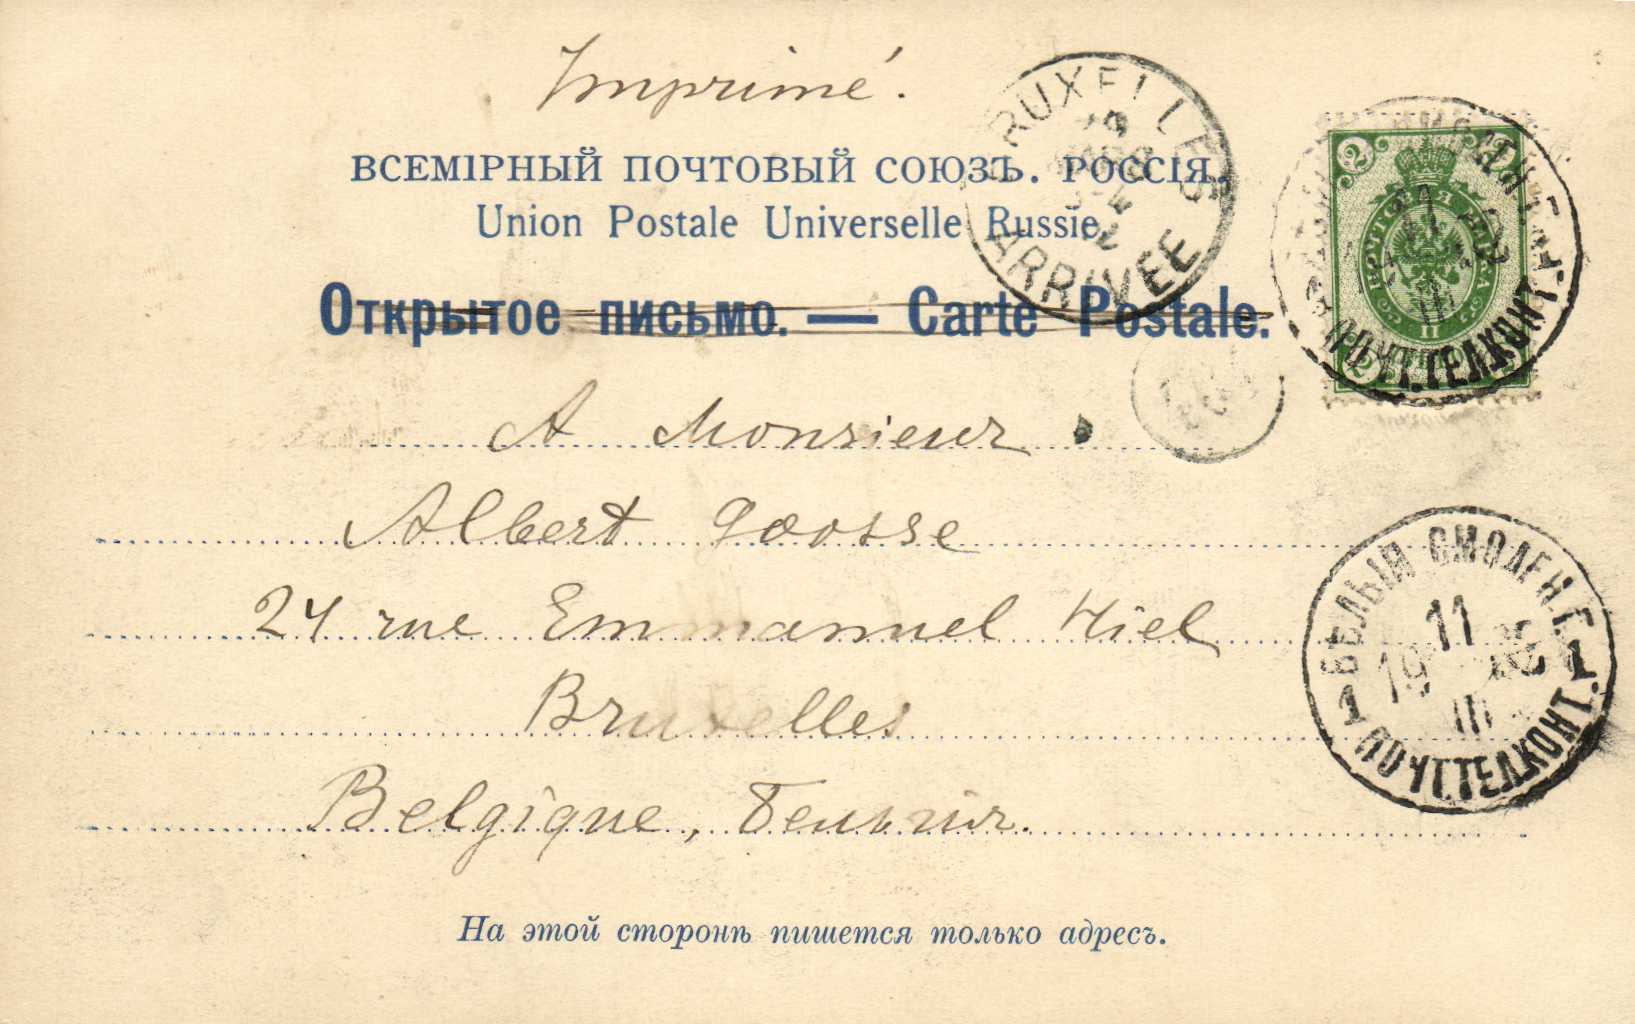 Imprimé.
ВСЕМІРНЫЙ ПОЧТОВЫЙ СОЮЗЪ. РОССІЯ.
Union Postale Universelle Russie
Открытое письмо. — Carte Postale.
BRUXELLES
ARRIVÉE
2
2
ПОЧТ.ТЕЛ.КОНТ.
A Monsieur
Albert Goosse
24 rue Emmanuel Hiel
Bruxelles
Belgique, Бельгія.
БѢЛЫЙ СМОЛЕН.Г.
11
19
III
1 ПОЧТ.ТЕЛ.КОНТ. 1
На этой сторонѣ пишется только адресъ.